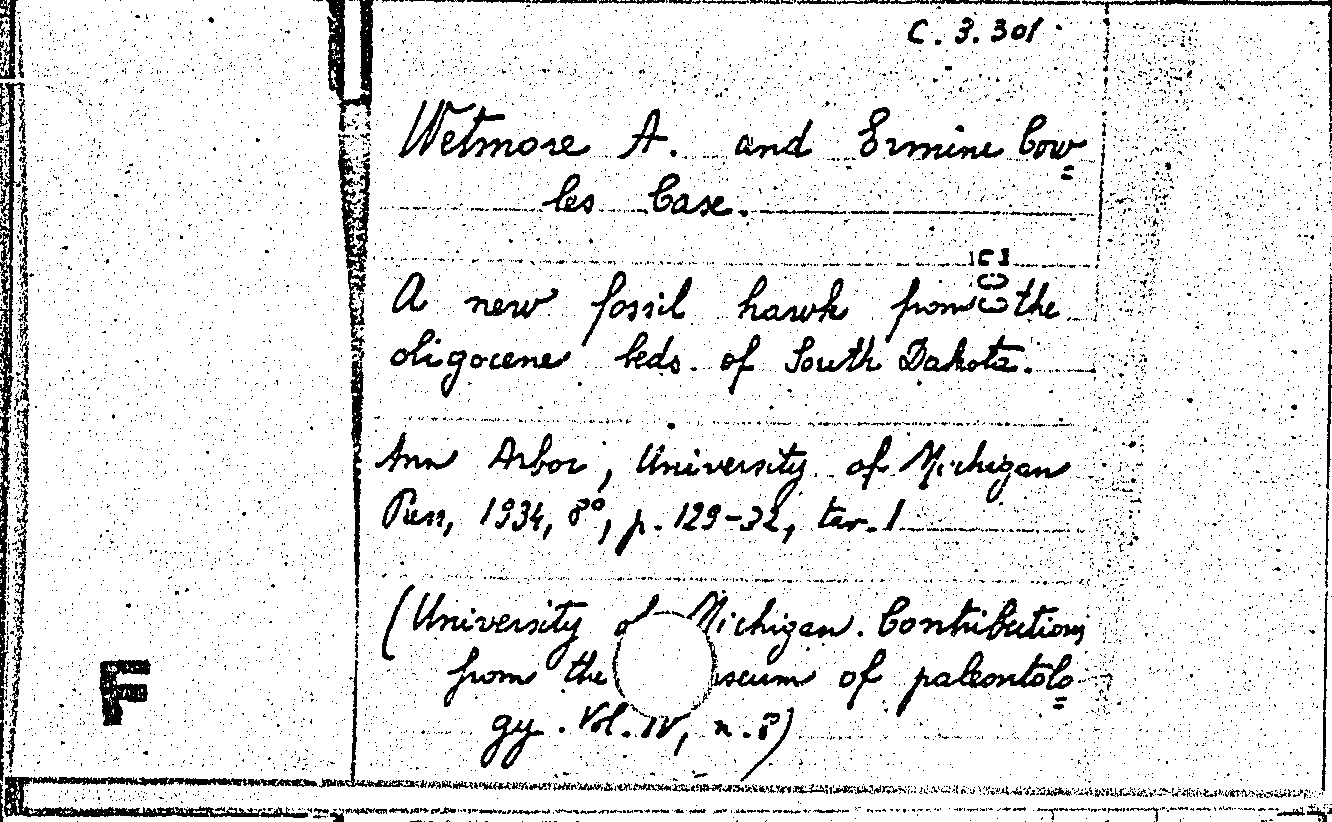 C. 3. 301
Wetmore A. and Ermine Cow=
les Case.
A new fossil hawk from the
oligocene beds of South Dakota.
Ann Arbor, University of Michigan
Press, 1934, 8°, p. 129-32, tav. 1
(University of Michigan. Contributions
from the seum of paleontolo=
gy. Vol. IV, n. 8)
F